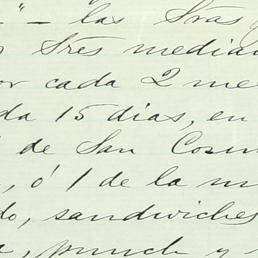 "- las Sras y
Sres median
or cada 2 me
da 15 dias, en
de San Cosm
, ó 1 de la m
do, sandwiches
a, punch y